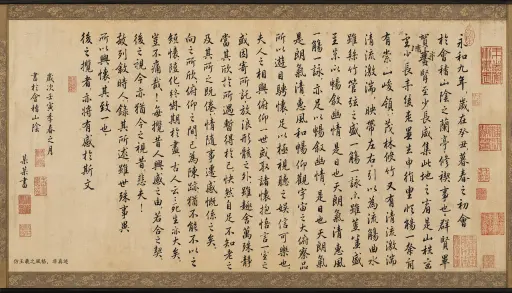 永和九年歲在癸丑暮春之初會
於會稽山陰之蘭亭修禊事也群賢畢
賢至少長咸集此地之有是山
至少長
有崇山峻領茂林修竹又有清流激湍
清流激湍映帶左右引以為流觴曲水
雖絲竹管弦之盛一觴一詠亦雖盛
至以暢敘幽情是日也天朗氣清惠風
一觴一詠亦足以暢敘幽情是日也天朗氣
是朗氣清惠風和暢仰觀宇宙之大俯察品
所以遊目騁懷足以極視聽之娛信可樂也
夫人之相與俯仰一世或取諸懷抱悟言一室之
或因寄所託放浪形骸之外雖趣舍萬殊靜
當其欣於所遇暫得於己快然自足不知老之
及其所之既倦情隨事遷感慨係之矣
向之所欣俯仰之間已為陳跡猶不能不以之
短懷隨化終期於盡古人云死生亦大矣
豈不痛哉每攬昔人興感之由若合之契
後之視今亦猶今之視昔悲夫
故列敘時人錄其所述雖世殊事異
所以興懷其致一也
後之攬者亦將有感於斯文
歲次壬寅季春之月
書於會稽山陰
某某書
仿王羲之風格，非真迹